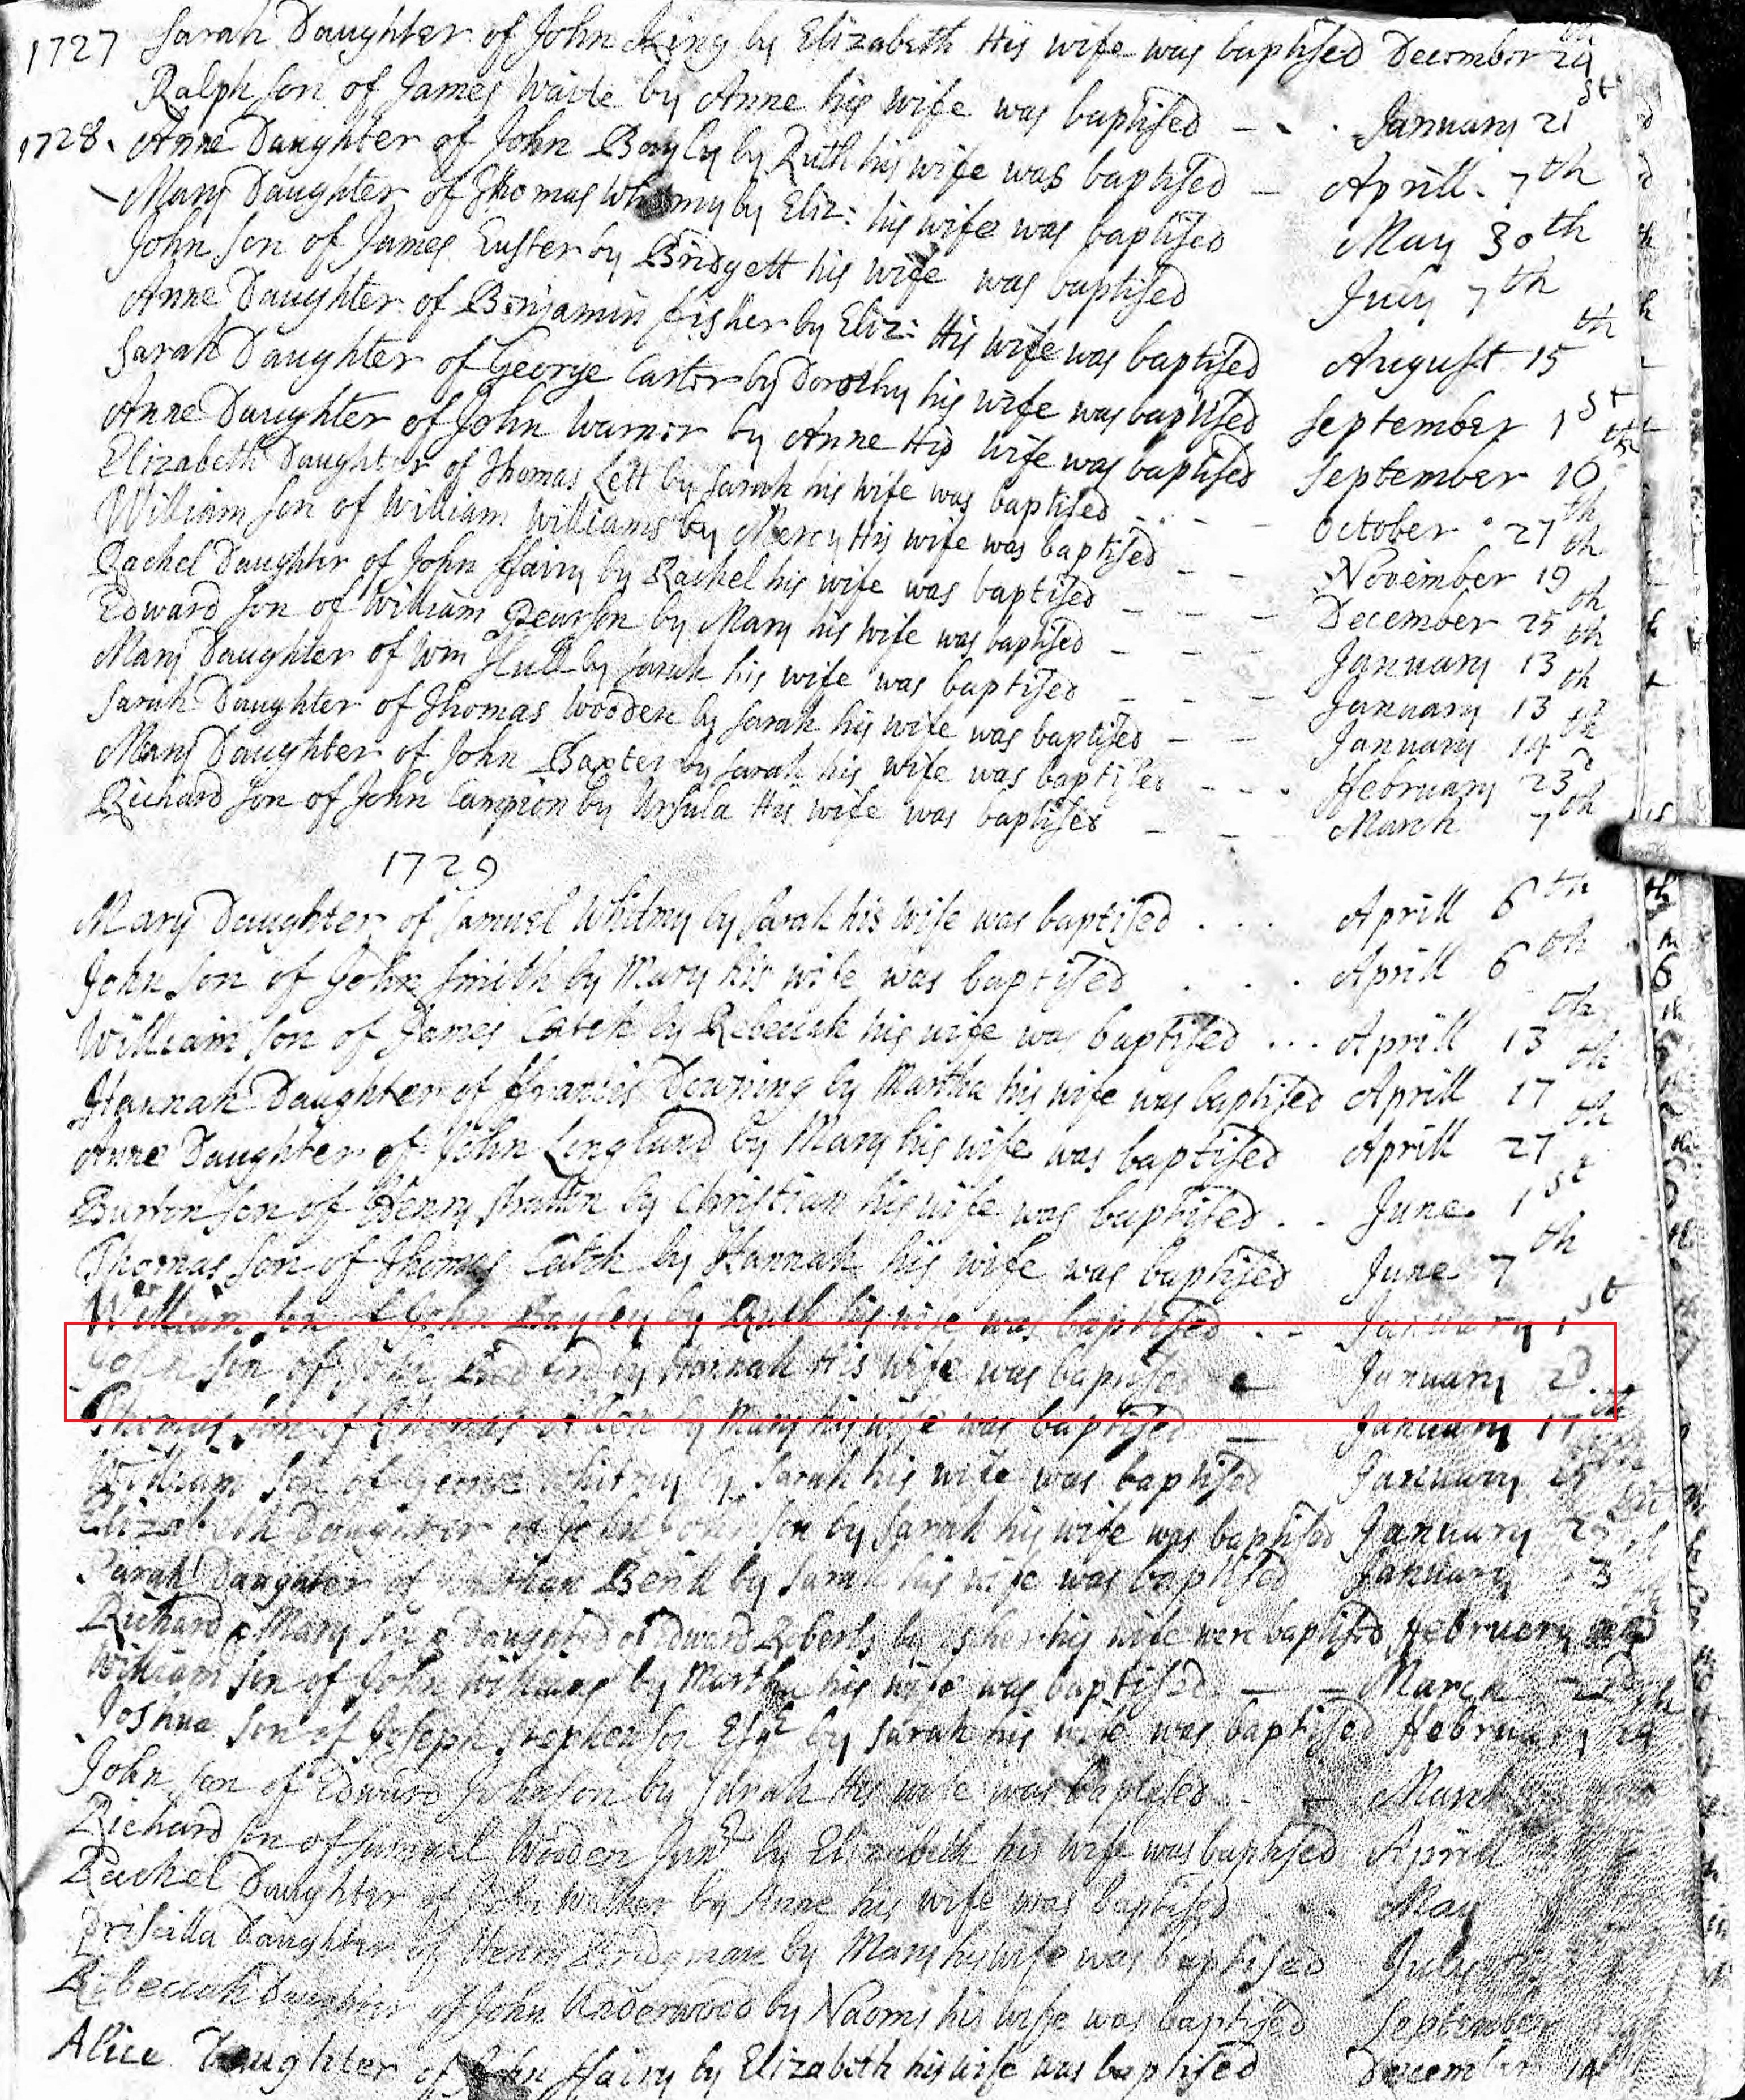 1727 Sarah Daughter of John King by Elizabeth His wife was baptised December 24
Ralph son of James Waite by Anne his wife was baptised - - - January 21st
1728. Anne Daughter of John Bayly by Ruth his wife was baptised - Aprill 7th
Mary Daughter of Thomas by Eliz: his wife was baptised May 30th
John son of James by Bridgett his wife was baptised July 7th
Anne Daughter of Benjamin fisher by Eliz: His wife was baptised August 15th
Sarah Daughter of George Carter by Dorothy his wife was baptised September 1st
Anne Daughter of John Warner by Anne His wife was baptised September 10th
Elizabeth Daughter of Thomas Lett by Sarah his wife was baptised - - - October 27th
William son of William Williams by Mercy His wife was baptised - - November 19th
Rachel Daughter of John ffairy by Rachel his wife was baptised - - - December 25th
Edward son of William Pearson by Mary his wife was baptised - - - January 13th
Mary Daughter of Wm Hull by Sarah his wife was baptised - - - January 13th
Sarah Daughter of Thomas Wooden by Sarah his wife was baptised - - January 14th
Mary Daughter of John Baxter by Sarah his wife was baptised - - - ffebruary 23d
Richard son of John Campion by Ursula His wife was baptised - - - March 7th
1729
Mary Daughter of Samuel Whitmy by Sarah his wife was baptised . . . Aprill 6th
John son of John Smith by Mary his wife was baptised . . . Aprill 6th
William son of James Catch by Rebeckah his wife was baptised ... Aprill 13th
Hannah Daughter of ffrancis Downing by Martha his wife was baptised Aprill 17th
Anne Daughter of John Lingland by Mary his wife was baptised Aprill 27th
Burton son of Henry by Christian his wife was baptised . . June 1st
Thomas son of Thomas Catch by Hannah his wife was baptised June 7th
William son of John Bayley by Ruth his wife was baptised . - January 1st
son of John by Hannah His wife was baptised January 2d.
Thomas son of Thomas Allen by Mary his wife was baptised - January 17th
William son of George Whitmy by Sarah his wife was baptised January
Elizabeth Daughter of John by Sarah his wife was baptised January
Sarah Daughter of by Sarah his wife was baptised January
Richard & Mary son & Daughter of Edward Roberts by his wife were baptised ffebruery
William son of John Williams by Martha his wife was baptised - - March
Joshua son of Joseph Stephenson Esqr by Sarah his wife was baptised ffebruary 24
John son of Edward Johnson by Sarah His wife was baptised - - March
Richard son of Samuel Wooden Junr by Elizabeth his wife was baptised Aprill
Rachel Daughter of John Walker by Anne his wife was baptised May
Priscilla Daughter of Henry Bridgman by Mary his wife was baptised July
Rebeccah Daughter of John Underwood by Naomi his wife was baptised September
Alice Daughter of John ffairy by Elizabeth his wife was baptised December 14